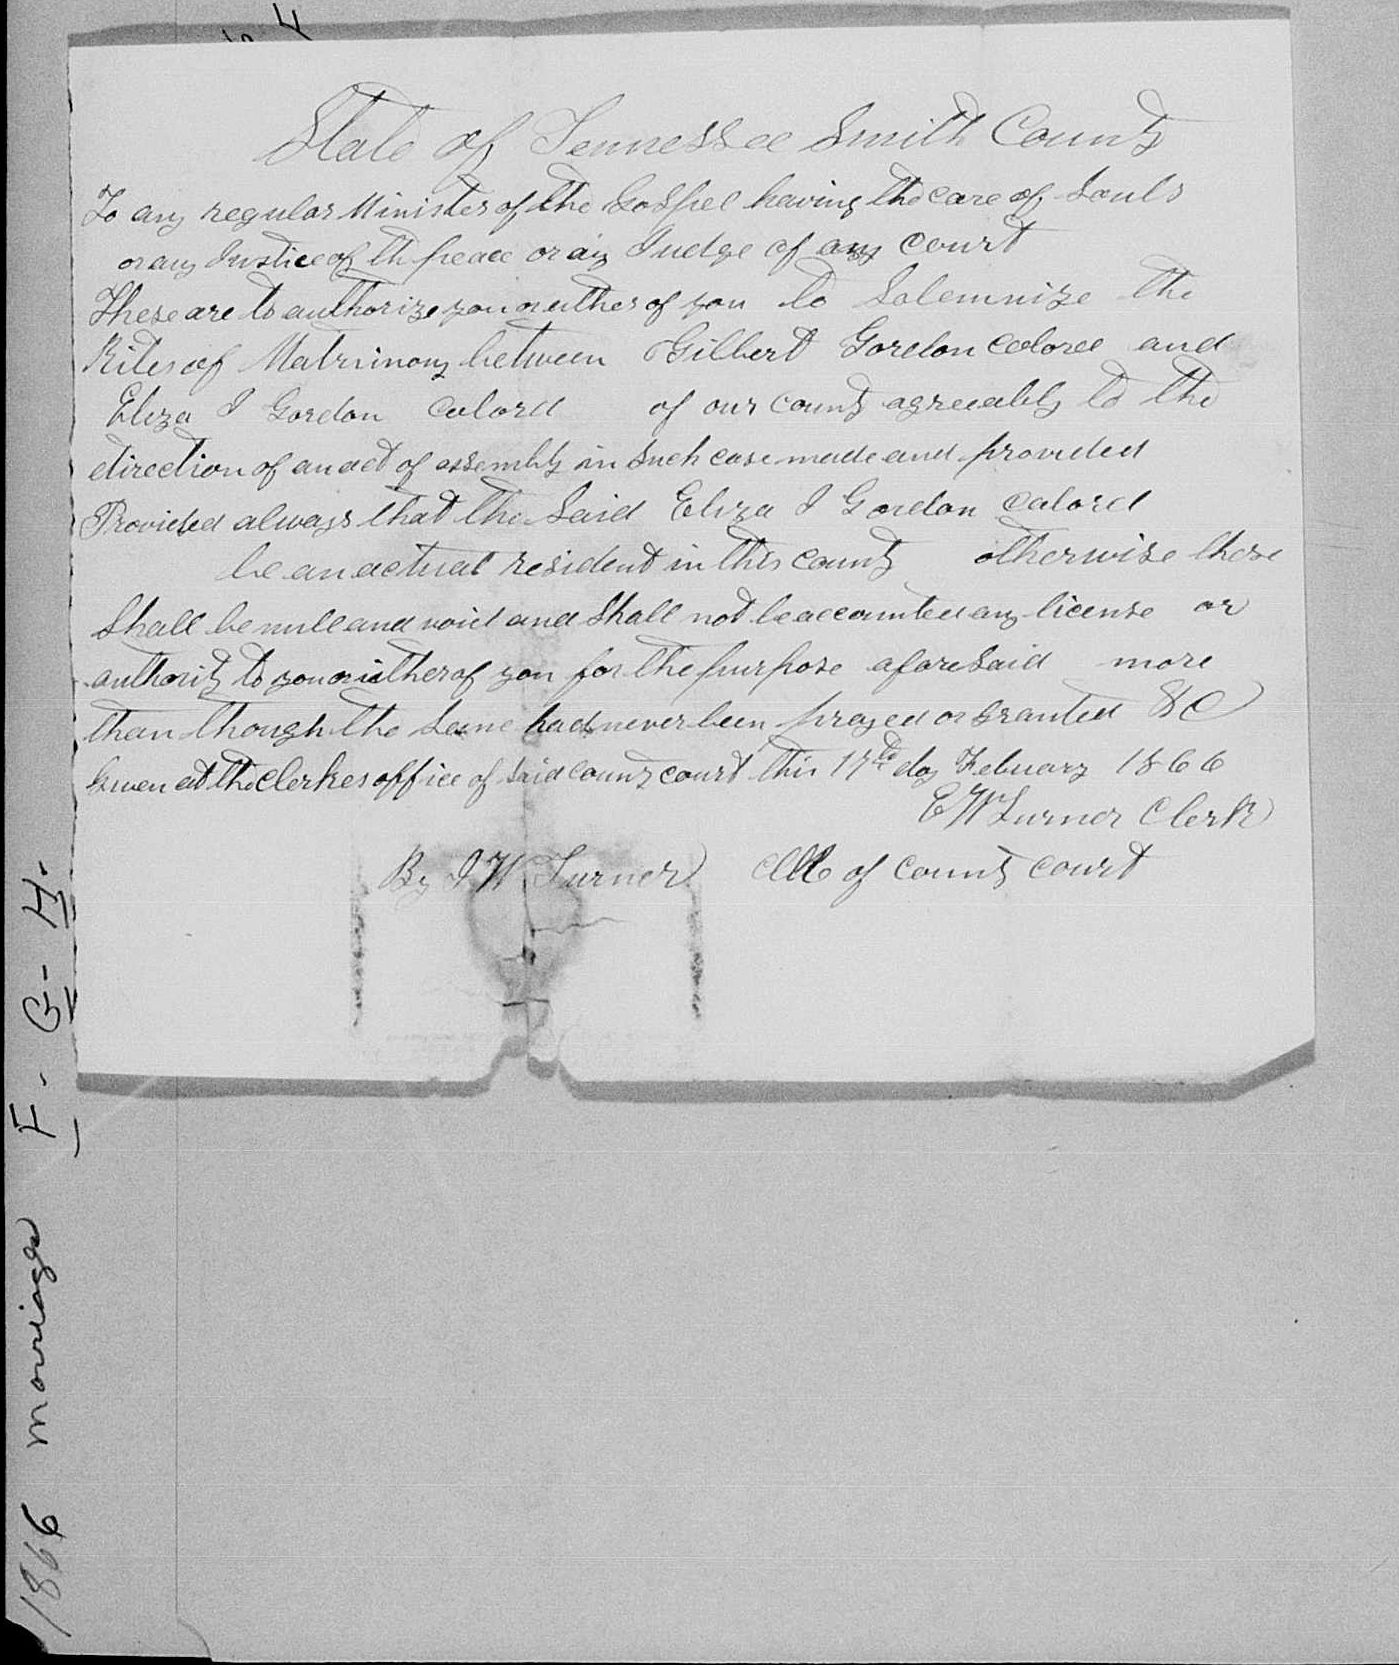 State of Tennessee Smith County
To any regular Minister of the Gospel having the care of Souls
or any Justice of th peace or any Judge of any Court
These are to authorize you or either of you to Solemnize the
Rites of Matrimony between Gilbert Gordon colored and
Eliza J Gordon colord of our county agreeably to the
direction of an act of assembly in Such case made and provided
Provided always that the Said Eliza J Gordon colord
be an actual resident in this county otherwise these
Shall be null and void and Shall not be accounted any license or
authority to you or either of you for the purpose aforesaid more
than though the Same had never been prayed or granted &C
Given at the Clerkes office of Said County court this 17th day Febuary 1866
E W Turner Clerk
By J W Turner of County Court
1866 marriage F. G- H.